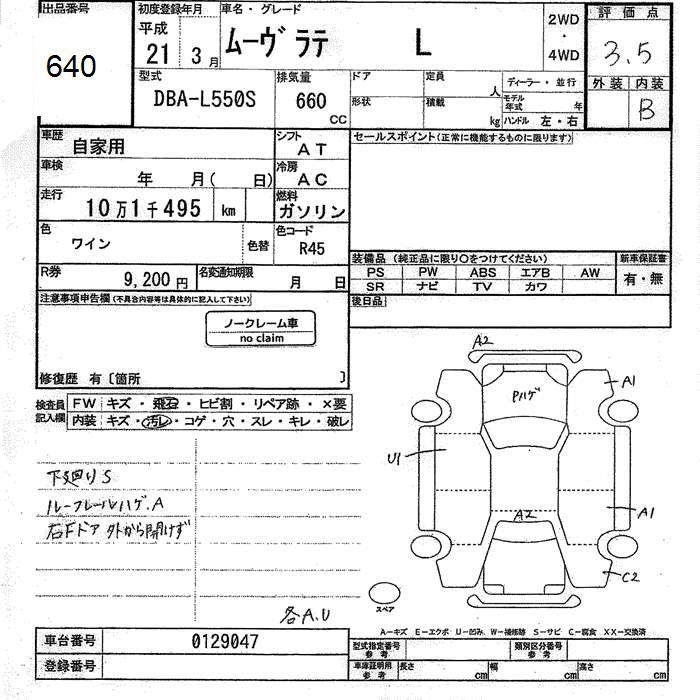 出品番号
640
初度登録年月
平成
21 3月
車名・グレード
ムーヴ ラテ L
2WD
・
4WD
評価点
3.5
外装 内装
B
型式
DBA-L550S
排気量
660
CC
ドア
定員
人
ディーラー・並行
形状
積載
kg
モデル年式
年
ハンドル 左・右
車歴
自家用
シフト
AT
車検
年 月( 日)
冷房
AC
走行
10万1千495 km
燃料
ガソリン
色
ワイン
色替
色コード
R45
R券
9,200円
名変通知期限
月 日
セールスポイント(正常に機能するものに限ります)
装備品(純正品に限り○をつけてください)
新車保証書
PS PW ABS エアB AW
有・無
SR ナビ TV カワ
後日品
注意事項申告欄(不具合内容等は具体的に記入して下さい)
ノークレーム車
no claim
修復歴 有〔箇所 〕
検査員
記入欄
FW キズ・飛石・ヒビ割・リペア跡・×要
内装 キズ・汚レ・コゲ・穴・スレ・キレ・破レ
下廻りS
ルーフレールハゲ.A
右Fドア 外から開けず
各A.U
A2
Pハゲ
A1
U1
A2
A1
C2
スペア
A―キズ E―エクボ U―凹み W―補修跡 S―サビ C―腐食 XX―交換済
車台番号
0129047
登録番号
型式指定番号
参考
類別区分番号
参考
車庫証明用
参考
長さ cm
幅 cm
高さ cm